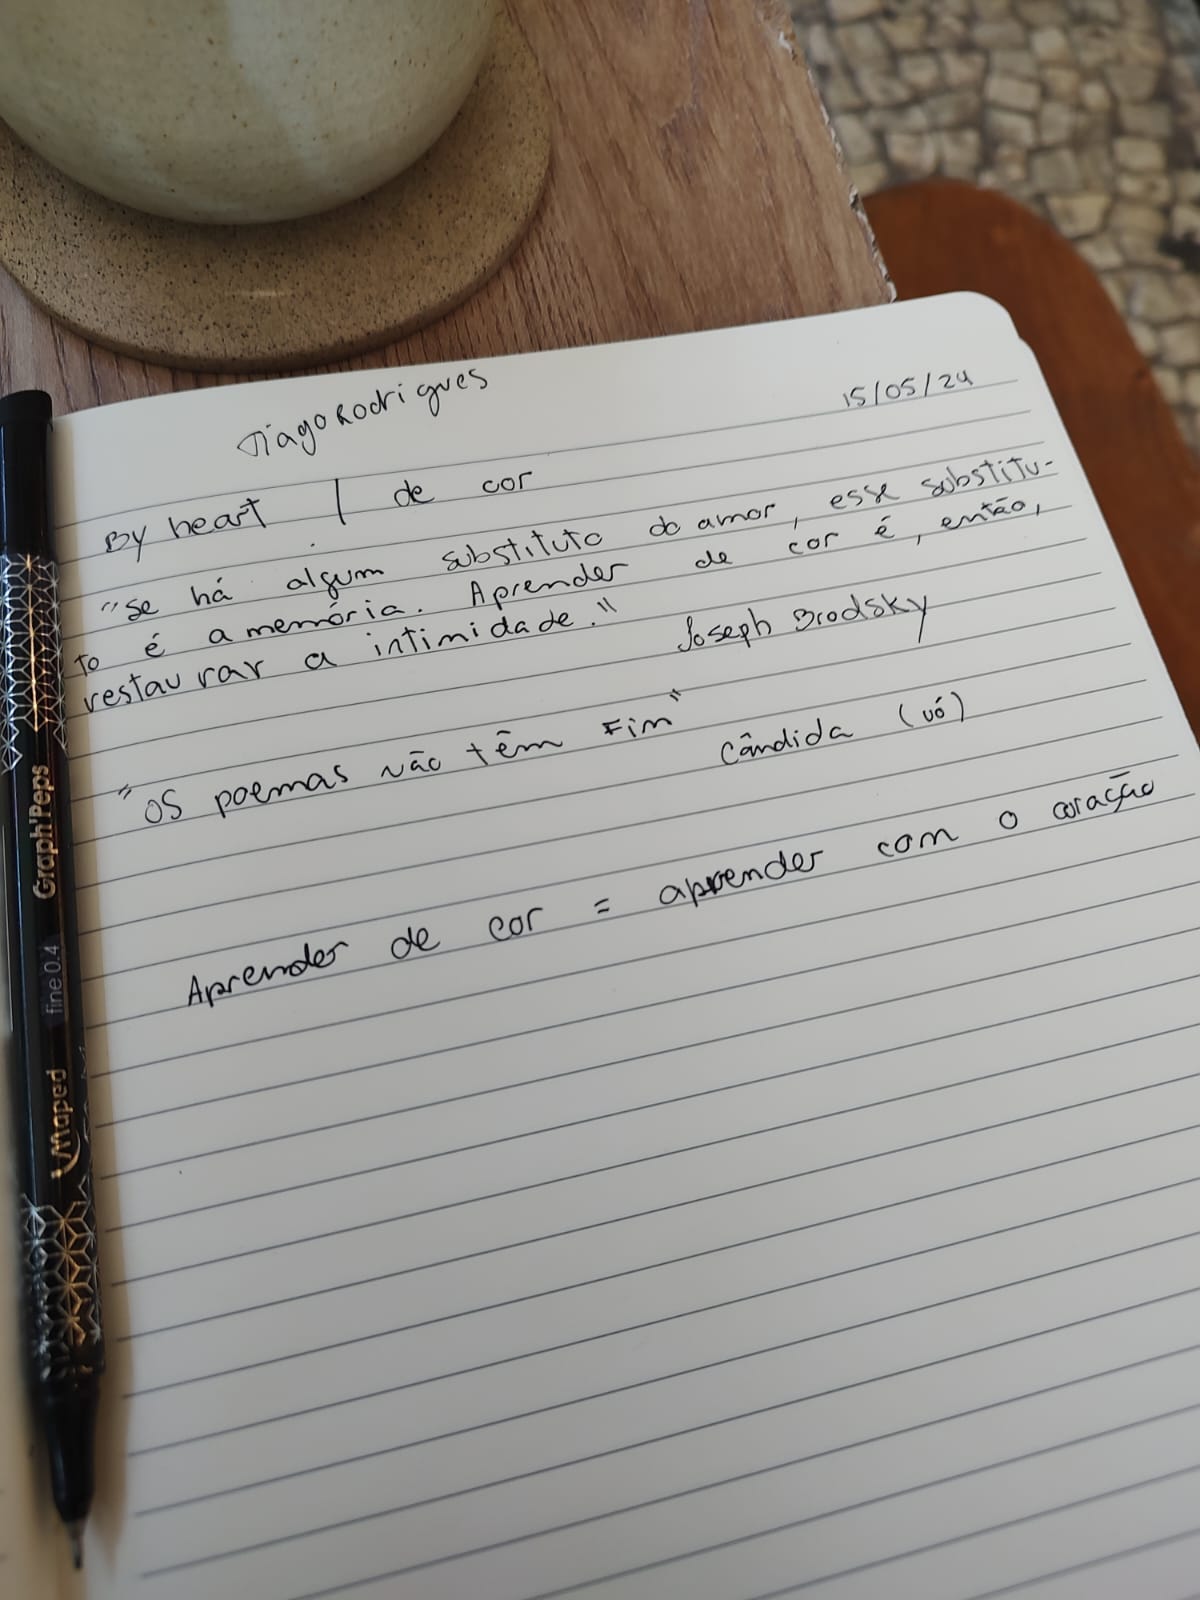 Tiago Rodrigues
15/05/24
By heart | de cor
"Se há algum substituto do amor, esse substitu-
to é a memória. Aprender de cor é, então,
restaurar a intimidade."
Joseph Brodsky
"Os poemas não têm fim"
Cândida (vó)
Aprender de cor = aprender com o coração
Graph'Peps
fine 0.4
Maped